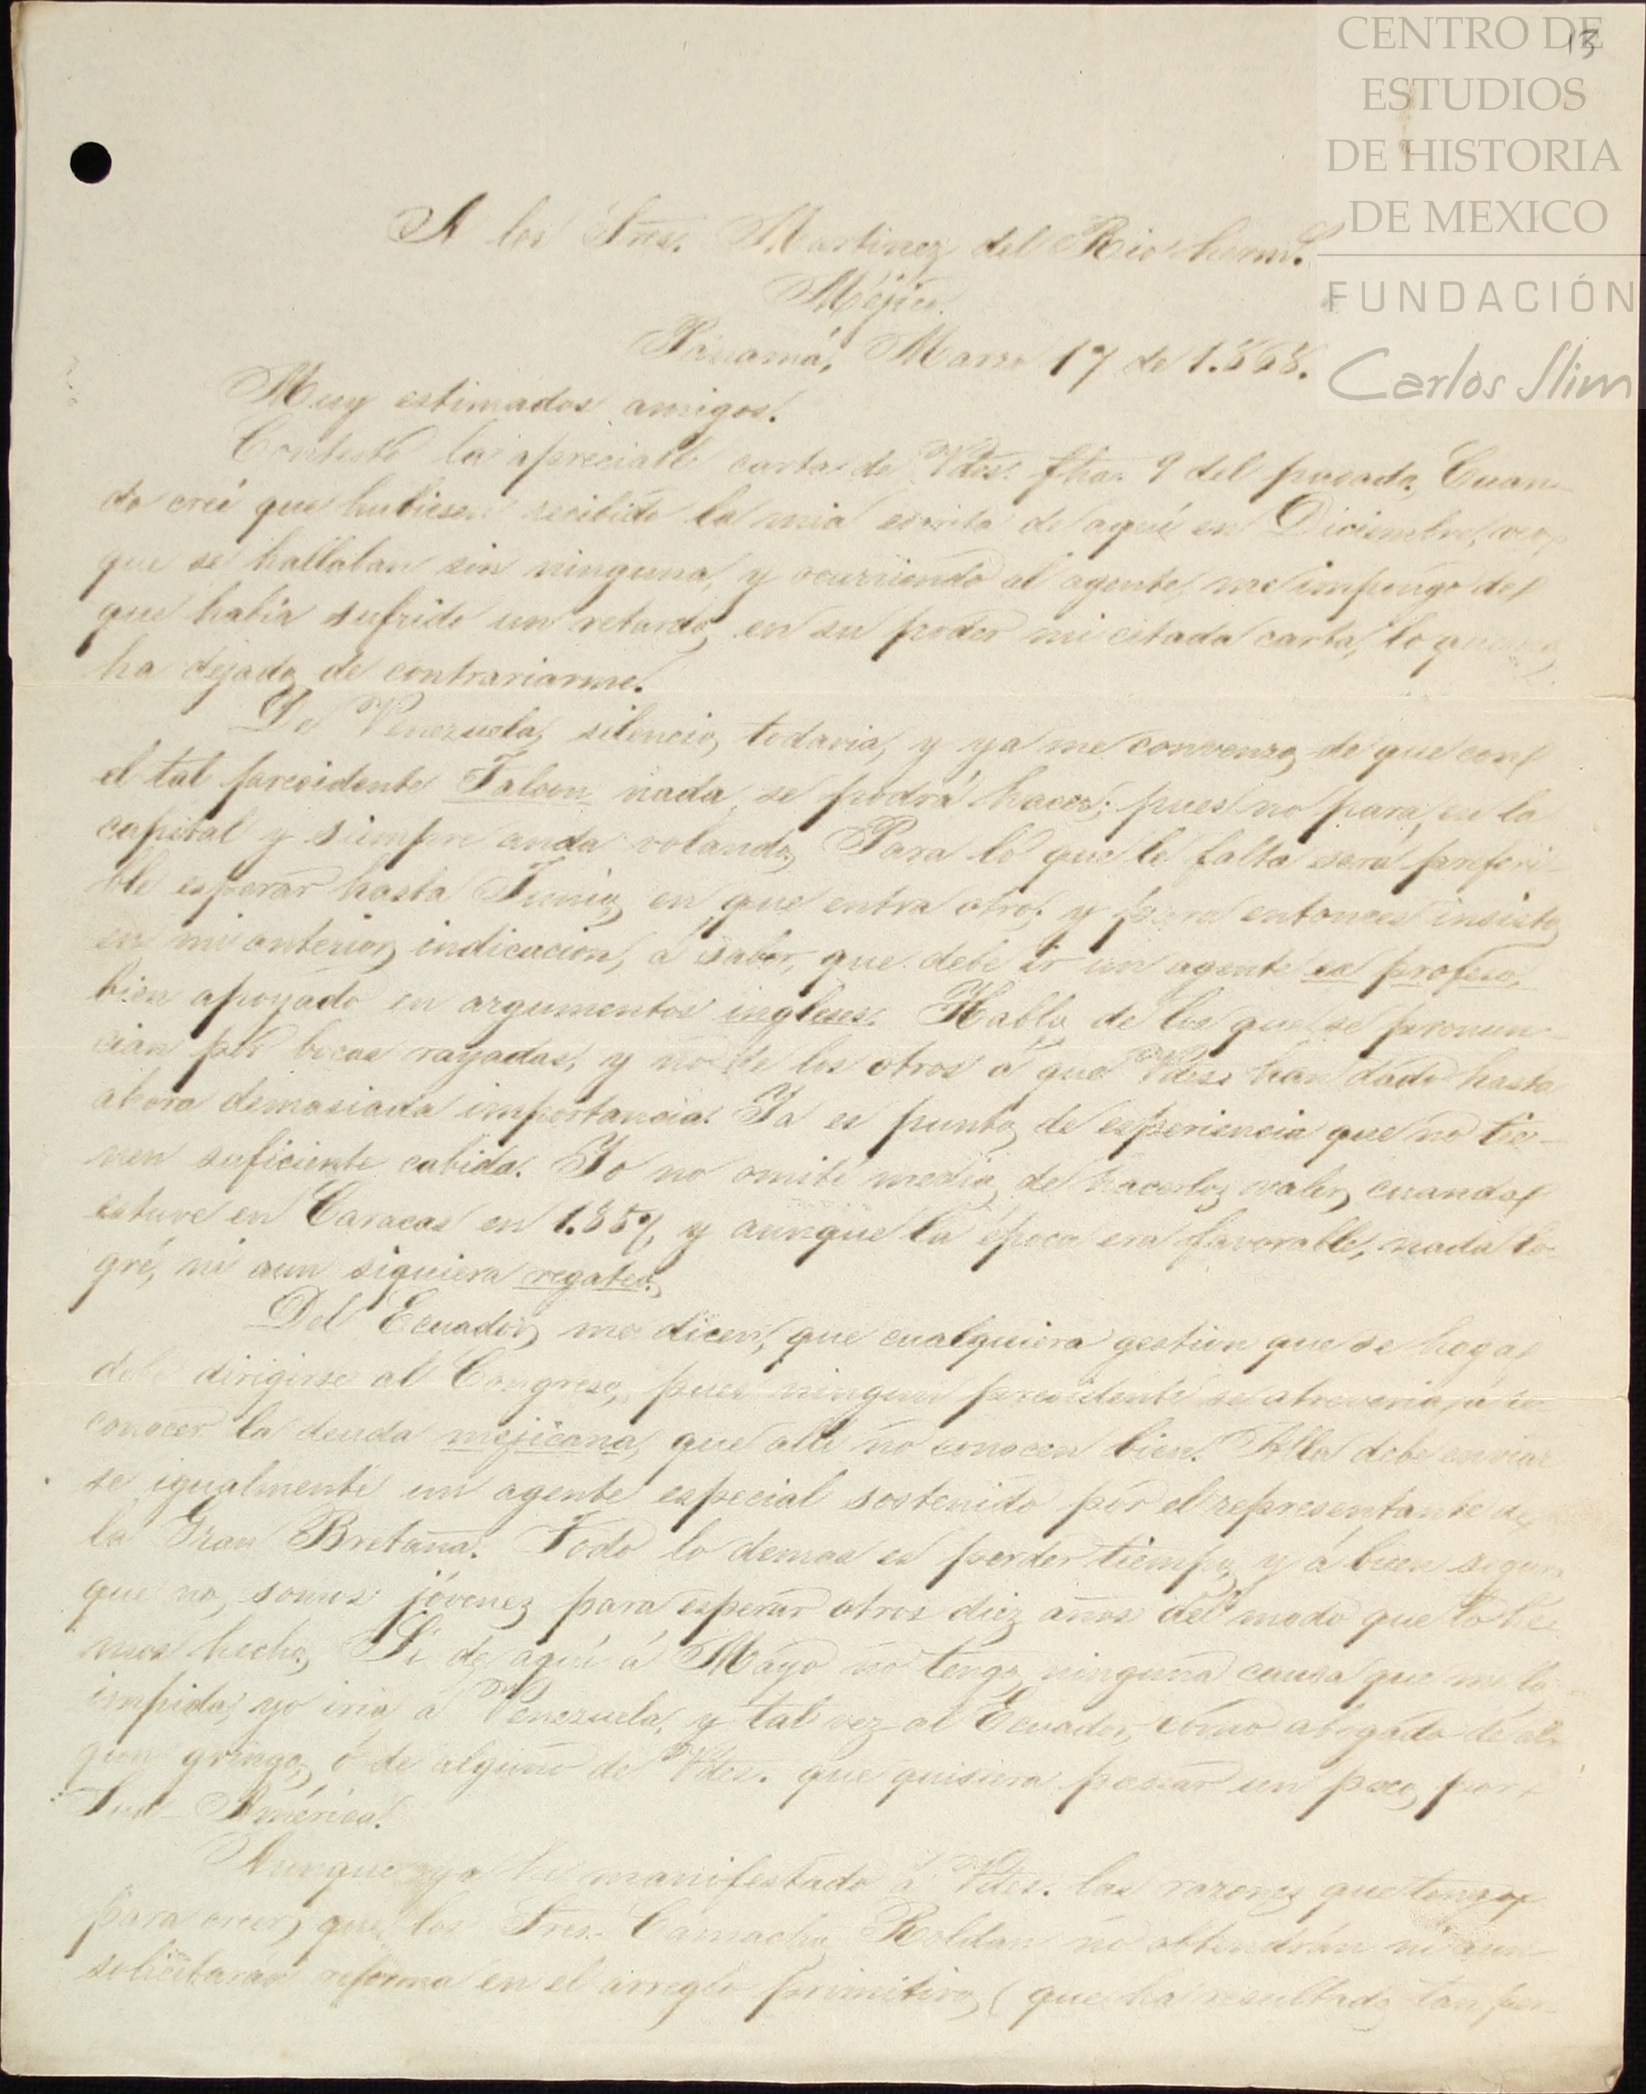 CENTRO DE
ESTUDIOS
DE HISTORIA
DE MEXICO
FUNDACIÓN
Carlos Slim
13
A los Sres. Martinez del Rio herms.
Méjico.
Panamá, Marzo 17 de 1.868.
Muy estimados amigos.
Contesto la apreciable carta de Vdes. fha. 9 del pasado. Cuan-
do creí que hubiesen recibido la mia escrita de aquí en Diciembre, veo
que se hallaban sin ninguna, y ocurriendo al agente, me impongo de
que habia sufrido un retardo en su poder mi citada carta, lo que no
ha dejado de contrariarme.
De Venezuela, silencio todavia, y ya me convenzo de que con
el tal presidente Falcon nada se podrá hacer; pues no para en la
capital y siempre anda volando. Para lo que le falta será preferi-
ble esperar hasta Junio, en que entra otro; y para entonces insisto
en mi anterior indicacion, á saber, que debe ir un agente ex profeso,
bien apoyado en argumentos ingleses. Hablo de los que se pronun-
cian por bocas rayadas, y no de los otros á que Vdes. han dado hasta
ahora demasiada importancia. Ya es punto de esperiencia que no tie-
nen suficiente cabida. Yo no omití medio de hacerlos valer, cuando
estuve en Caracas en 1.857, y aunque la época era favorable, nada lo-
gré, ni aun siquiera regateo.
Del Ecuador me dicen, que cualquiera gestion que se haga,
debe dirigirse al Congreso, pues ningun presidente se atreveria á re-
conocer la deuda mejicana, que allí no conocen bien. Allá debe enviar-
se igualmente un agente especial sostenido por el representante de
la Gran Bretaña. Todo lo demas es perder tiempo, y á bien seguro
que no somos jóvenez para esperar otros diez años del modo que lo he-
mos hecho. Si de aquí á Mayo no tengo ninguna causa que me lo
impida, yo iria á Venezuela, y tal vez al Ecuador, cómo abogado de al-
gun gringo, ó de alguno de Vdes. que quisiera pasear un poco por
Sud-América.
Aunque ya he manifestado á Vdes. las razones que tengo
para creer, que los Sres. Camacho Roldan no obtendrán ni aun
solicitarán reforma en el arreglo primitivo, (que ha resultado tan per-